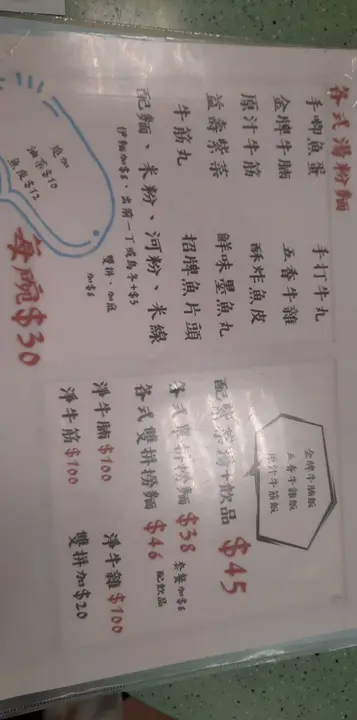 各式湯粉麵
手唧魚蛋 手打牛丸
金牌牛腩 五香牛雜
原汁牛筋 酥炸魚皮
益壽紫菜 鮮味墨魚丸
牛筋丸 招牌魚片頭
配麵、米粉、河粉、米線
伊麵加$6、出前一丁或烏冬+$5
雙拼、加底
加$6
追加
油菜$10
魚皮$12
每碗$30
金牌牛腩飯
五香牛雜飯
原汁牛筋飯
配紫菜湯+飲品 $45
各式單拼撈麵 $38 套餐加$6
各式雙拼撈麵 $46 配飲品
淨牛腩$100 淨牛雜$100
淨牛筋$100 雙拼加$20